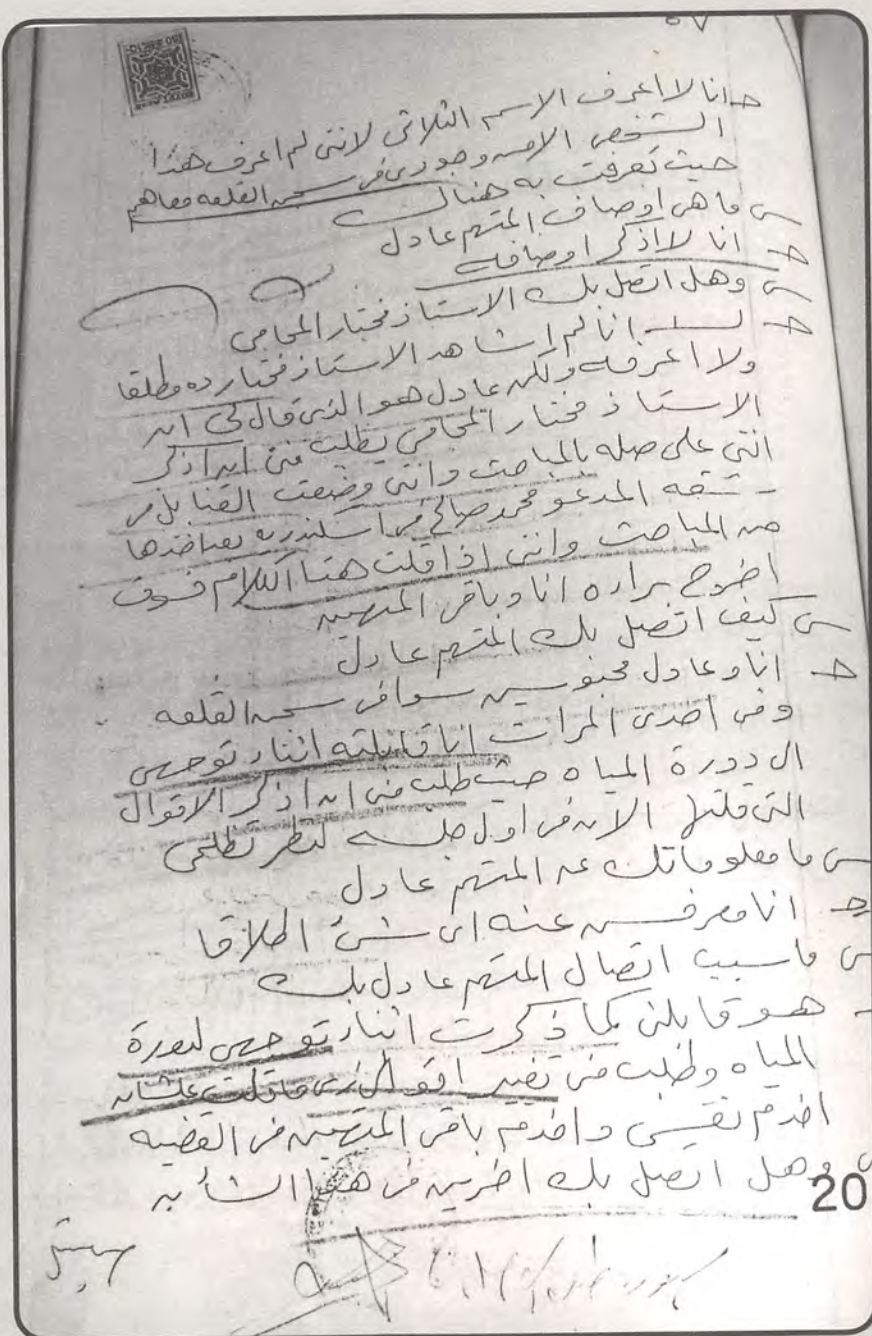 ٥٧
ج انا لا اعرف الاسم الثلاثى لاننى لم اعرف هذا
الشخص الا من وجودى فى سجن القلعه معاهم
حيث تعرفت به هناك
س ما هى اوصاف المتهم عادل
ج انا لا اذكر اوصافه
س وهل اتصل بك الاستاذ مختار المحامى
ج لا انا لم اشاهد الاستاذ مختار ده مطلقا
ولا اعرفه ولكن عادل هو الذى قال لى ان
الاستاذ مختار المحامى يطلب منى ان اذكر
اننى على صله بالمباحث واننى وضعت القنابل فى
شقه المدعو محمد صالح فى اسكندريه بعد اخذها
من المباحث واننى اذا قلت هذا الكلام فسوف
اخرج براءه انا وباقى المتهمين
س كيف اتصل بك المتهم عادل
ج انا وعادل محبوسين سوا فى سجن القلعه
وفى احدى المرات انا قابلته اثناء توجهى
الى دورة المياه حيث طلب منى ان اذكر الاقوال
التى قلتها الان فى اول جلسه لنظر تظلمى
س ما معلوماتك عن المتهم عادل
ج انا معرفش عنه اى شئ اطلاقا
س ما سبب اتصال المتهم عادل بك
هو قابلنى كما ذكرت اثناء توجهى لدورة
المياه وطلب منى تغيير اقوالى زى ما قلت علشان
اخدم نفسى واخدم باقى المتهمين فى القضيه
س وهل اتصل بك اخرين فى هذا الشأن
20